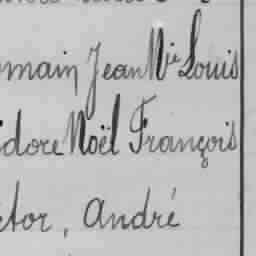 main, Jean Mie Louis
idore Noël François
ctor, André